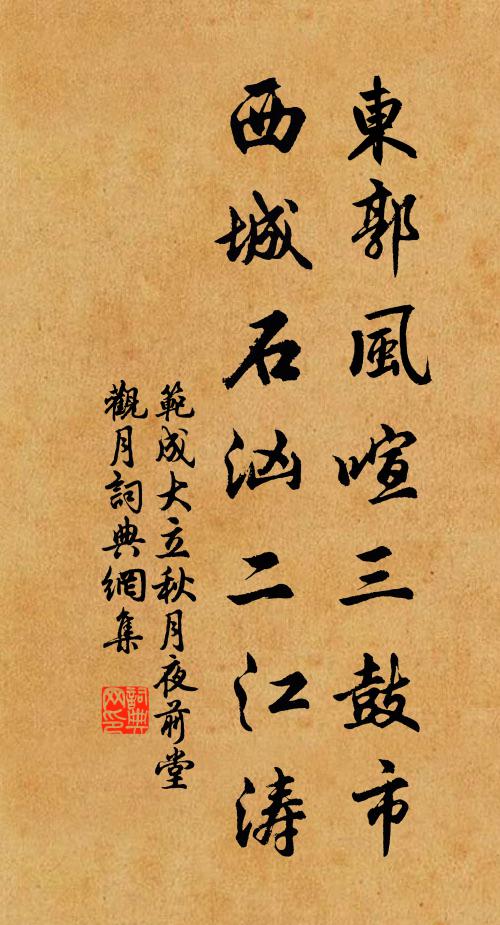 東郭風喧三鼓市
西城石洶二江濤
範成大立秋月夜前堂
觀月詞典網集
詞典
网印